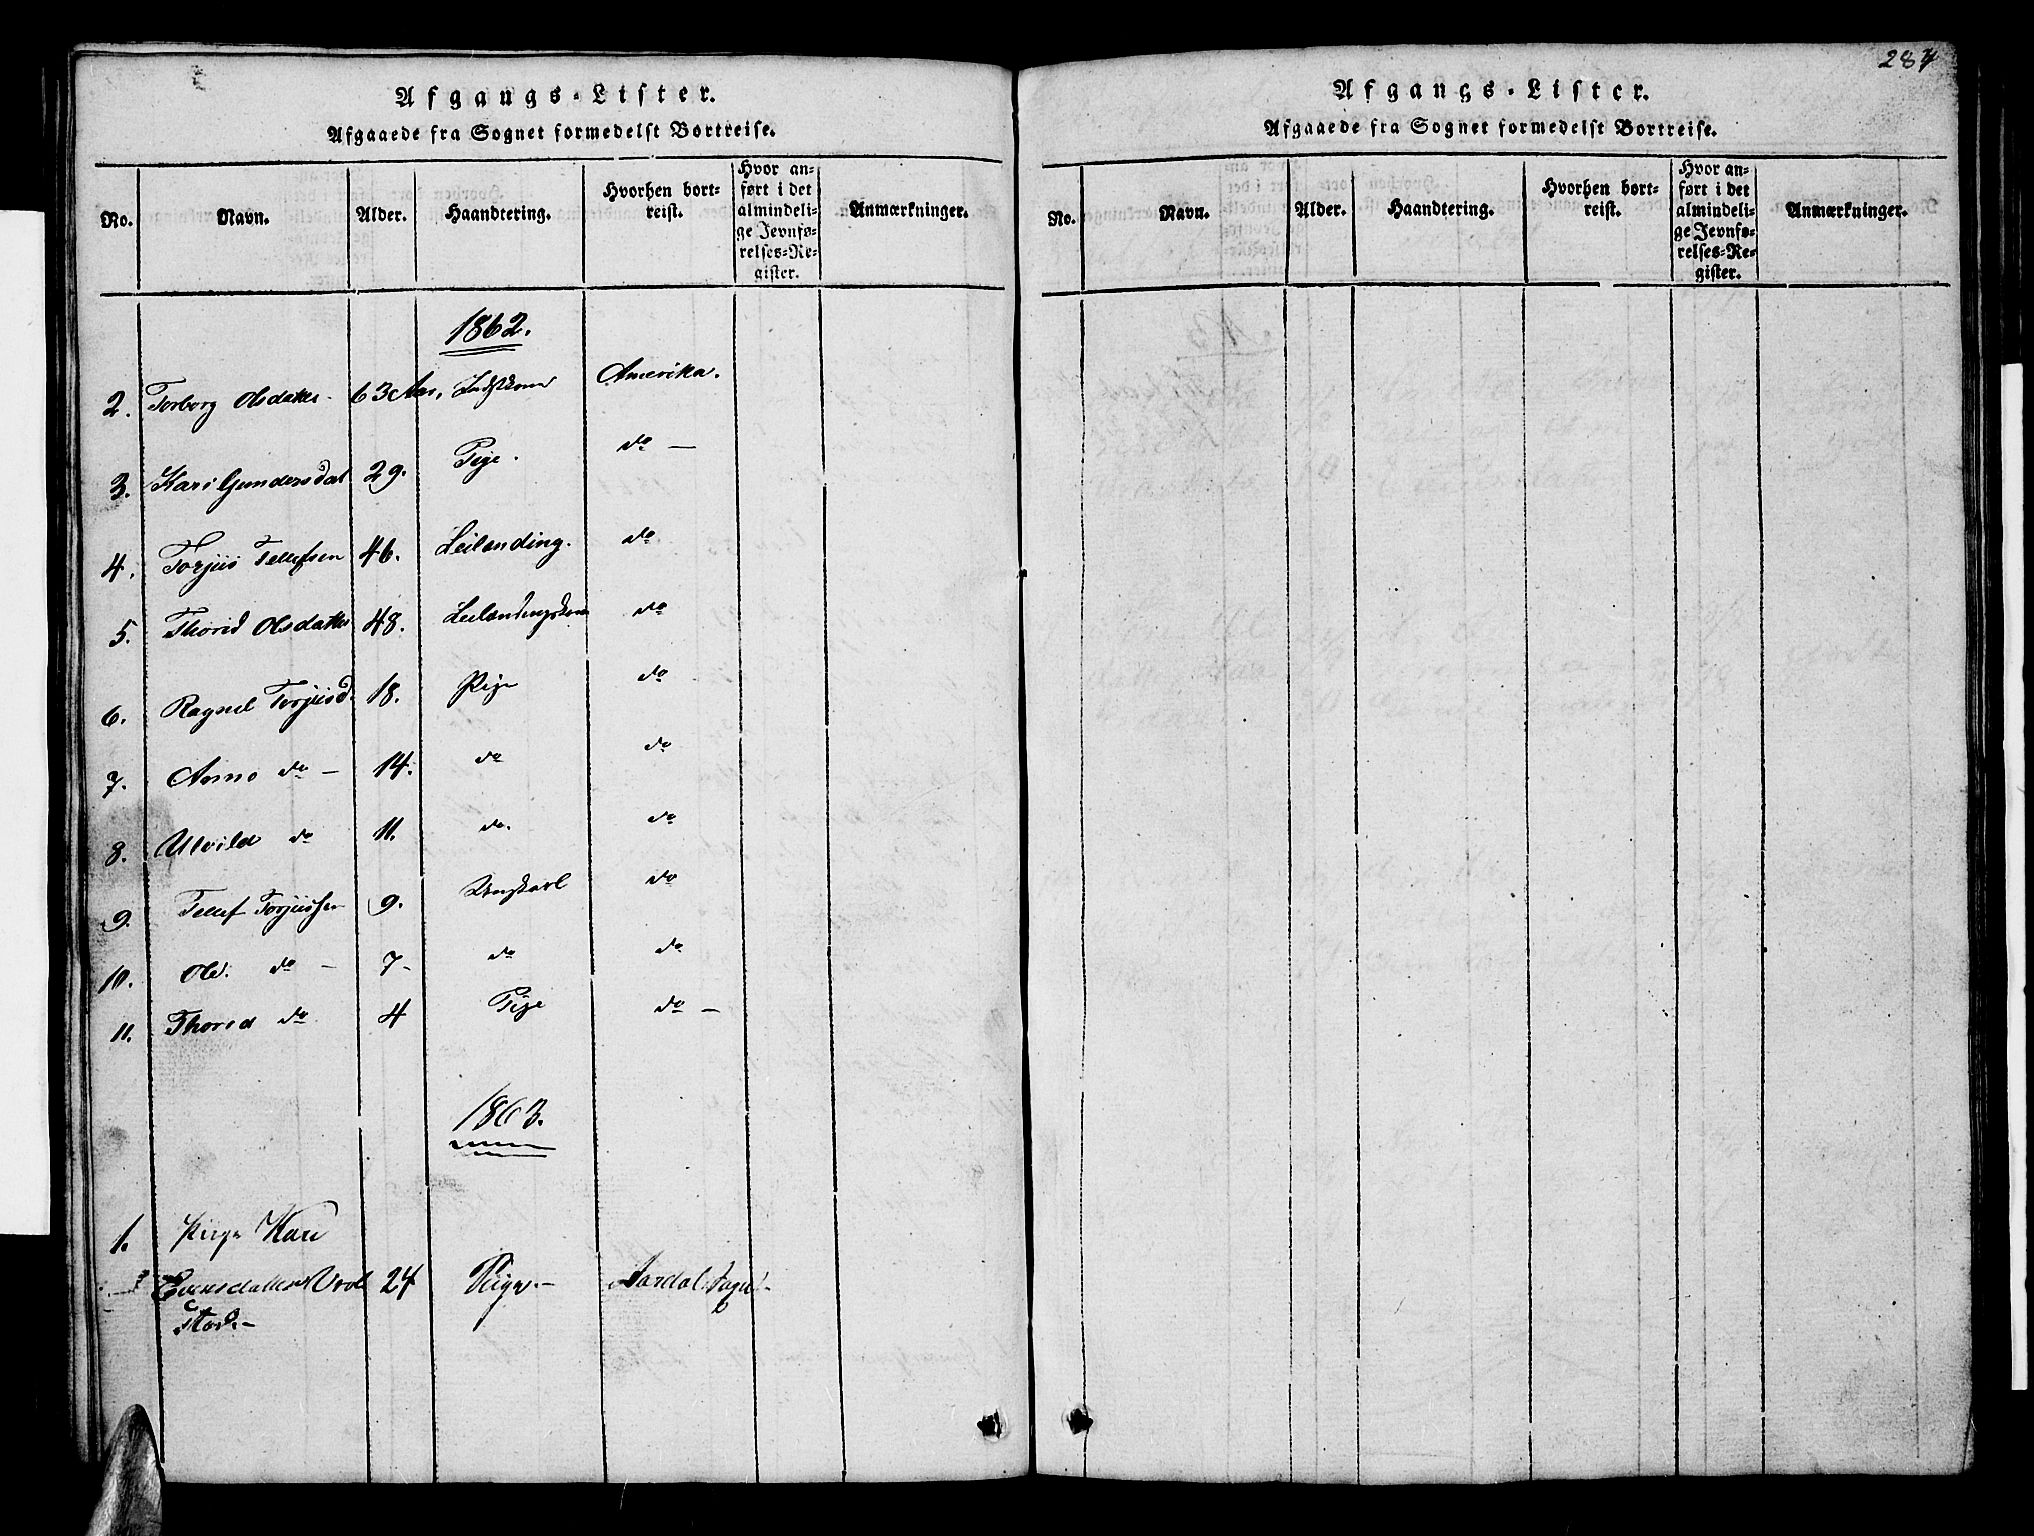 Afgangs-Lister.
Afgaaede fra Sognet formedelst Bortreise.
No. Navn. Alder. Haandtering. Hvorhen bort-reist. Hvor an-ført i det almindeli-ge Jevnfø-relses-Re-gister. Anmærkninger.
1862.
2. Torborg Olsdatter 63 Aar, Amerika.
3. Kari Gundersdat 29. Pige. do —
4. Torjus Tellefsen 46. Leilænding. do
5. Thorid Olsdatter 48. Leilændingskone do
6. Ragnil Torjusd. 18. Pige do
7. Anne do — 14. do do
8. do 11. do. do
9. Tellef Torjussen 9. Ungkarl do
10. Ole. do — 7 - do do
11. Thorid do 4 Pige do —
1863.
1. Pige Kari
24 Pige - Aardal Sogn -
Afgangs-Lister.
Afgaaede fra Sognet formedelst Bortreise.
No. Navn. Alder. Haandtering. Hvorhen bort-reist. Hvor an-ført i det almindeli-ge Jevnfø-relses-Re-gister. Anmærkninger.
284